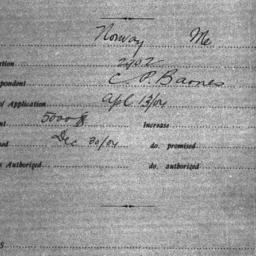 Norway Me
ation 2902
pondent C P. Barnes
of Application Apl 13/04
nt 5000 $ Increase
ed Dec 30/04 do. promised
s Authorized do. authorized
S